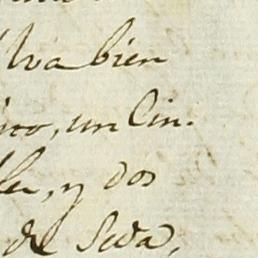 lva bien
ino, un Cin-
ler, y dos
de Seda,